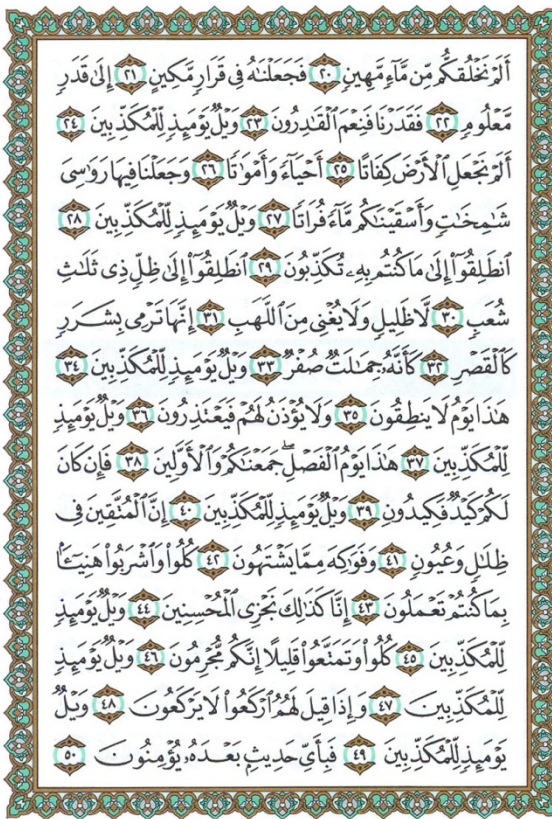 أَلَمْ نَخْلُقكُّم مِّن مَّآءٍ مَّهِينٍ ٢٠ فَجَعَلْنَٰهُ فِى قَرَارٍ مَّكِينٍ ٢١ إِلَىٰ قَدَرٍ
مَّعْلُومٍ ٢٢ فَقَدَرْنَا فَنِعْمَ ٱلْقَٰدِرُونَ ٢٣ وَيْلٌ يَوْمَئِذٍ لِّلْمُكَذِّبِينَ ٢٤
أَلَمْ نَجْعَلِ ٱلْأَرْضَ كِفَاتًا ٢٥ أَحْيَآءً وَأَمْوَٰتًا ٢٦ وَجَعَلْنَا فِيهَا رَوَٰسِىَ
شَٰمِخَٰتٍ وَأَسْقَيْنَٰكُم مَّآءً فُرَاتًا ٢٧ وَيْلٌ يَوْمَئِذٍ لِّلْمُكَذِّبِينَ ٢٨
ٱنطَلِقُوٓا۟ إِلَىٰ مَا كُنتُم بِهِۦ تُكَذِّبُونَ ٢٩ ٱنطَلِقُوٓا۟ إِلَىٰ ظِلٍّ ذِى ثَلَٰثِ
شُعَبٍ ٣٠ لَّا ظَلِيلٍ وَلَا يُغْنِى مِنَ ٱللَّهَبِ ٣١ إِنَّهَا تَرْمِى بِشَرَرٍ
كَٱلْقَصْرِ ٣٢ كَأَنَّهُۥ جِمَٰلَتٌ صُفْرٌ ٣٣ وَيْلٌ يَوْمَئِذٍ لِّلْمُكَذِّبِينَ ٣٤
هَٰذَا يَوْمُ لَا يَنطِقُونَ ٣٥ وَلَا يُؤْذَنُ لَهُمْ فَيَعْتَذِرُونَ ٣٦ وَيْلٌ يَوْمَئِذٍ
لِّلْمُكَذِّبِينَ ٣٧ هَٰذَا يَوْمُ ٱلْفَصْلِ ۖ جَمَعْنَٰكُمْ وَٱلْأَوَّلِينَ ٣٨ فَإِن كَانَ
لَكُمْ كَيْدٌ فَكِيدُونِ ٣٩ وَيْلٌ يَوْمَئِذٍ لِّلْمُكَذِّبِينَ ٤٠ إِنَّ ٱلْمُتَّقِينَ فِى
ظِلَٰلٍ وَعُيُونٍ ٤١ وَفَوَٰكِهَ مِمَّا يَشْتَهُونَ ٤٢ كُلُوا۟ وَٱشْرَبُوا۟ هَنِيٓـًٔۢا
بِمَا كُنتُمْ تَعْمَلُونَ ٤٣ إِنَّا كَذَٰلِكَ نَجْزِى ٱلْمُحْسِنِينَ ٤٤ وَيْلٌ يَوْمَئِذٍ
لِّلْمُكَذِّبِينَ ٤٥ كُلُوا۟ وَتَمَتَّعُوا۟ قَلِيلًا إِنَّكُم مُّجْرِمُونَ ٤٦ وَيْلٌ يَوْمَئِذٍ
لِّلْمُكَذِّبِينَ ٤٧ وَإِذَا قِيلَ لَهُمُ ٱرْكَعُوا۟ لَا يَرْكَعُونَ ٤٨ وَيْلٌ
يَوْمَئِذٍ لِّلْمُكَذِّبِينَ ٤٩ فَبِأَىِّ حَدِيثٍۭ بَعْدَهُۥ يُؤْمِنُونَ ٥٠